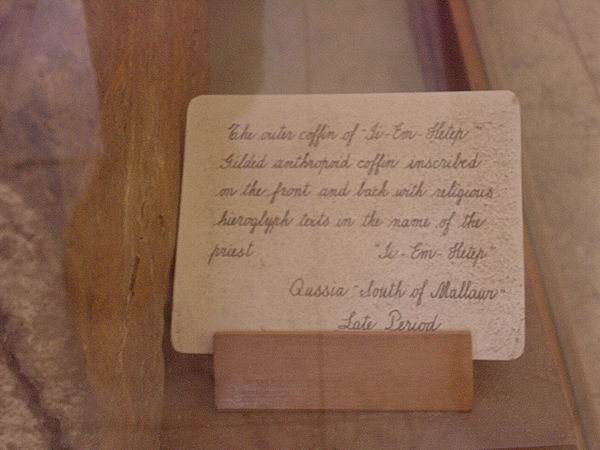 The outer coffin of "Ii-Em-Hetep"
Gilded anthropoid coffin inscribed
on the front and back with religious
hieroglyph texts in the name of the
priest "Ii-Em-Hetep"
Qussia "South of Mallawr"
Late Period